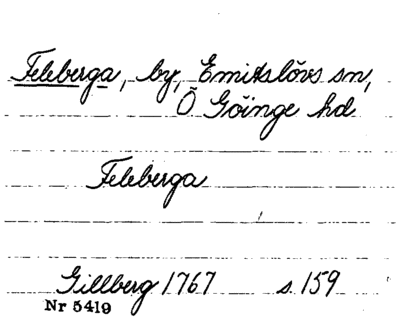 Feleberga, by, Emitslövs sn,
Ö Göinge hd
Feleberga
Gillberg 1767 s. 159
Nr 5419